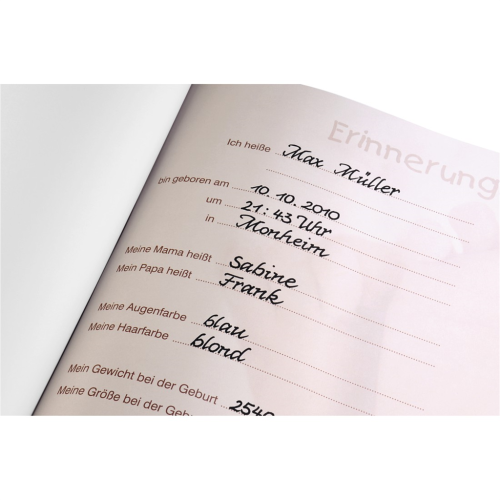 Erinnerung
Ich heiße Max Müller
bin geboren am 10.10.2010
um 21:43 Uhr
in Monheim
Meine Mama heißt Sabine
Mein Papa heißt Frank
Meine Augenfarbe blau
Meine Haarfarbe blond
Mein Gewicht bei der Geburt
Meine Größe bei der Gebu 2540